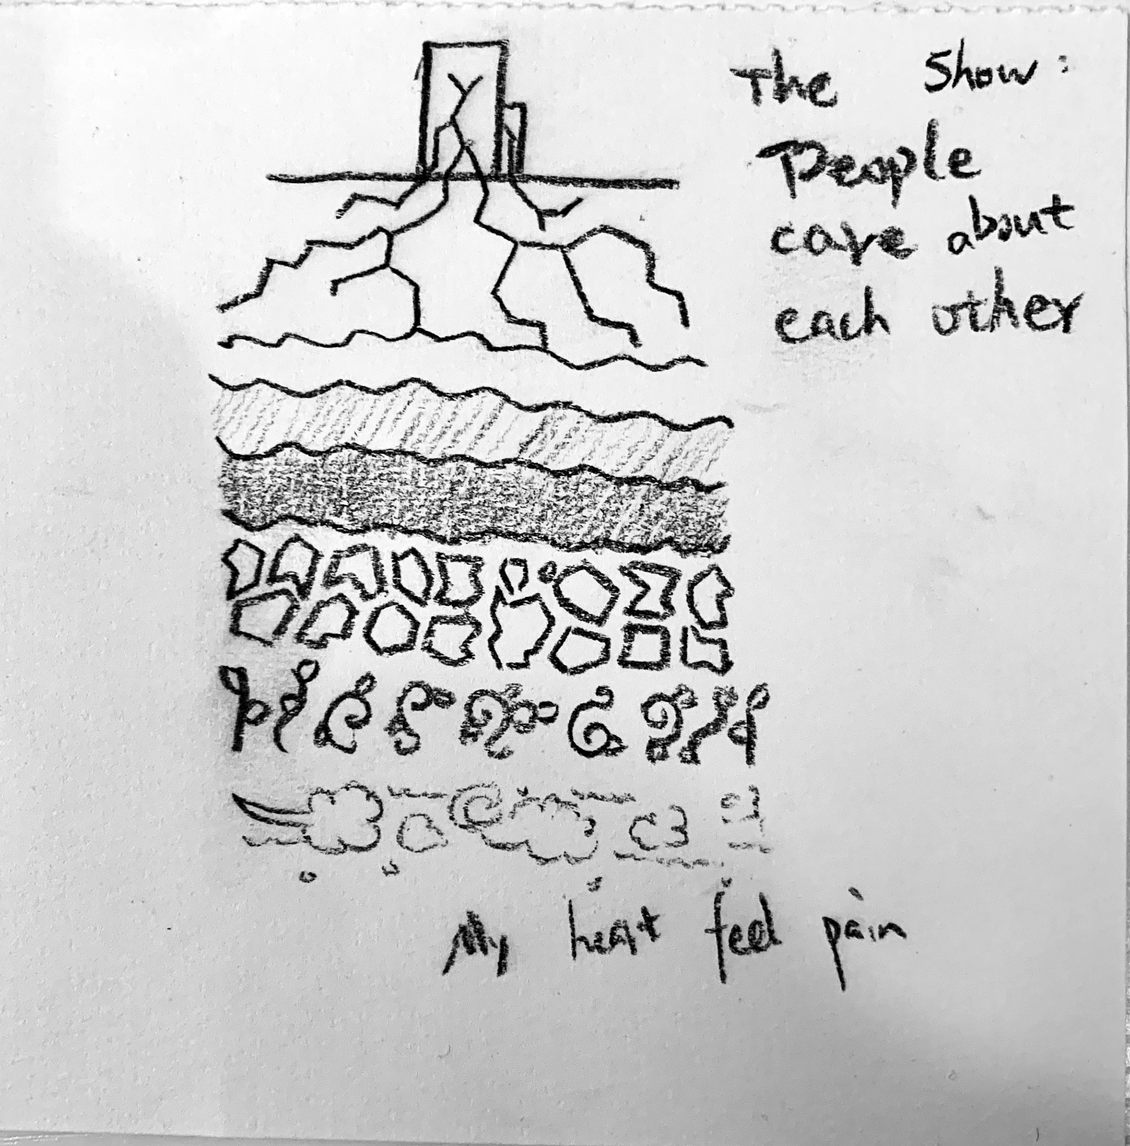 The Show:
People
care about
each other
My heart feel pain